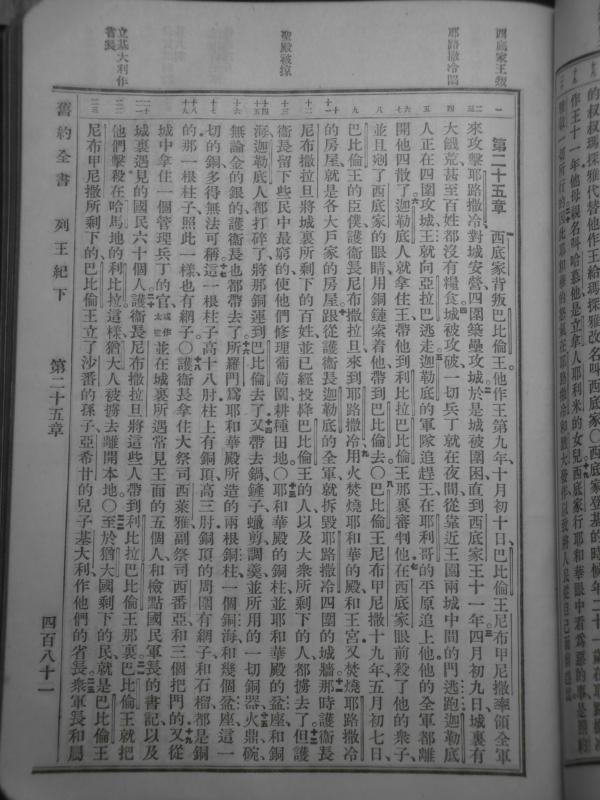 西底家王叛
耶路撒冷陷
聖殿被掠
立基大利作
省長
第二十五章 西底家背叛巴比倫王他作王第九年十月初十日巴比倫王尼布甲尼撒率領全軍
來攻擊耶路撒冷對城安營四圍築壘攻城於是城被圍困直到西底家王十一年四月初九日城裏有
大饑荒甚至百姓都沒有糧食城被攻破一切兵丁就在夜間從靠近王園兩城中間的門逃跑迦勒底
人正在四圍攻城王就向亞拉巴逃走迦勒底的軍隊追趕王在耶利哥的平原追上他他的全軍都離
開他四散了迦勒底人就拿住王帶他到利比拉巴比倫王那裏審判他在西底家眼前殺了他的衆子
並且剜了西底家的眼睛用銅鏈索着他帶到巴比倫去〇巴比倫王尼布甲尼撒十九年五月初七日
巴比倫王的臣僕護衛長尼布撒拉旦來到耶路撒冷用火焚燒耶和華的殿和王宮又焚燒耶路撒冷
的房屋就是各大戶家的房屋跟從護衛長迦勒底的全軍就拆毀耶路撒冷四圍的城牆那時護衛長
尼布撒拉旦將城裏所剩下的百姓並已經投降巴比倫王的人以及大衆所剩下的人都擄去了但護
衛長留下些民中最窮的使他們修理葡萄園耕種田地〇耶和華殿的銅柱並耶和華殿的盆座和銅
海迦勒底人都打碎了將那銅運到巴比倫去了又帶去鍋鏟子蠟剪調羹並所用的一切銅器火鼎碗
無論金的銀的護衛長也都帶去了所羅門爲耶和華殿所造的兩根銅柱一個銅海和幾個盆座這一
切的銅多得無法可稱這一根柱子高十八肘柱上有銅頂高三肘銅頂的周圍有網子和石榴都是銅
的那一根柱子照此一樣也有網子〇護衛長拿住大祭司西萊雅副祭司西番亞和三個把門的又從
城中拿住一個管理兵丁的官或作太監並在城裏所遇常見王面的五個人和檢點國民軍長的書記以及
城裏遇見的國民六十個人護衛長尼布撒拉旦將這些人帶到利比拉巴比倫王那裏巴比倫王就把
他們擊殺在哈馬地的利比拉這樣猶大人被擄去離開本地〇至於猶大國剩下的民就是巴比倫王
尼布甲尼撒所剩下的巴比倫王立了沙番的孫子亞希甘的兒子基大利作他們的省長衆軍長和屬
舊約全書 列王紀下 第二十五章 四百八十一